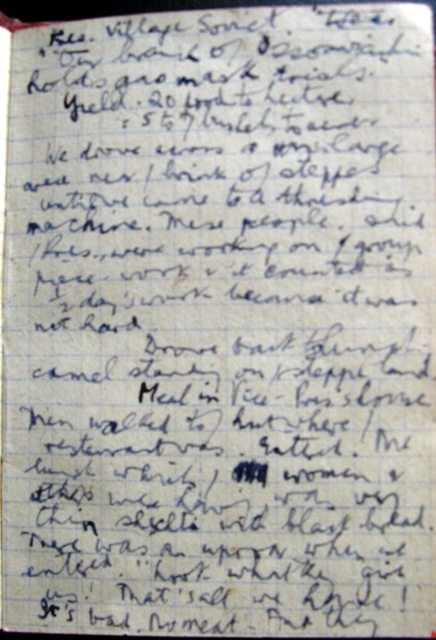 Pres. Village Soviet. "We are
"Our branch of Ossoaviachim
holds gas mask trials."
Yield. 20 pood to hectare
= 5 to 7 bushels to acre
We drove across a large
area near / brink of steppes
until we came to a threshing
machine. These people, said
/ Pres., were working on / group
piece-work & it counted as
½ day's work because it was
not hard.
Drove back through
camel standing on / steppe land
Meal in Vice-Pres's house
Then walked to / hut where /
restaurant was. Entered. The
lunch which / women &
others were having was very
thin with black bread.
There was an uproar when we
entered. "Look what they give
us! That's all we have!
It's bad. No meat. And they